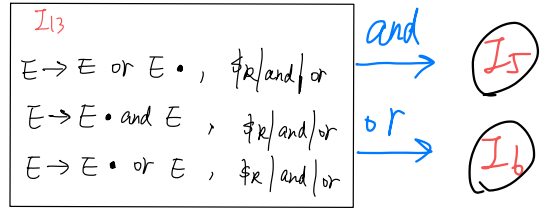 I13
E → E or E • , $R|and|or
E → E • and E , $R|and|or
E → E • or E , $R|and|or
and
I5
or
I6